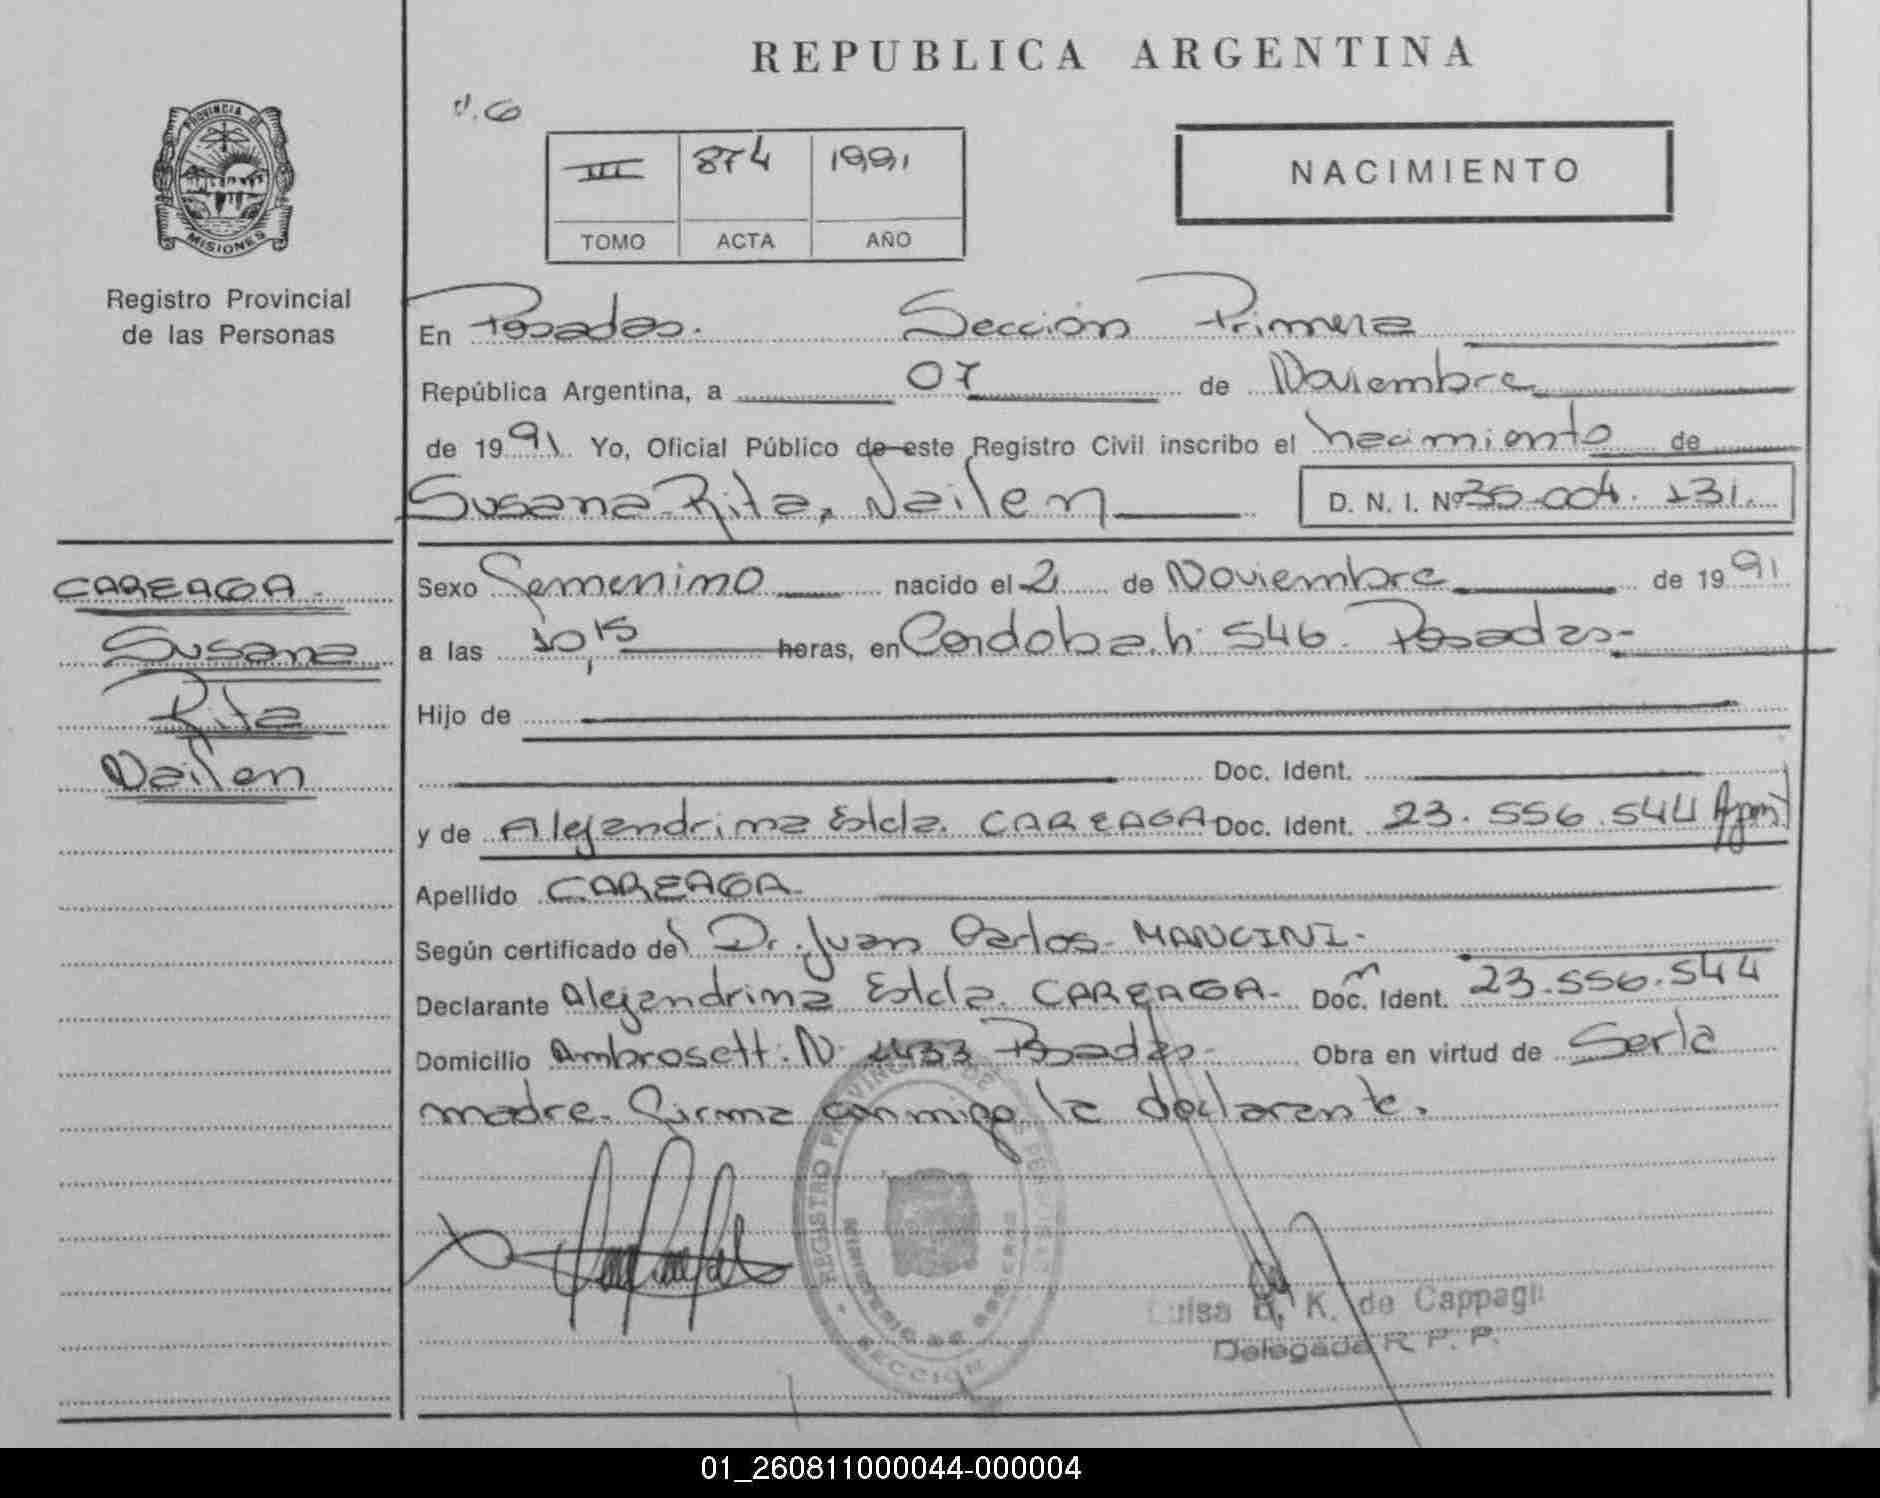 REPUBLICA ARGENTINA
PROVINCIA DE
MISIONES
Registro Provincial
de las Personas
III 874 1991
TOMO ACTA AÑO
NACIMIENTO
En Posadas. Sección Primera
República Argentina, a 07 de Noviembre
de 1991 Yo, Oficial Público de este Registro Civil inscribo el nacimiento de
Susana Rita, Nailen D. N. I. Nº 35.004.131.
CAREAGA.
Susana
Rita
Nailen
Sexo Femenino nacido el 2 de Noviembre de 1991
a las 10,15 horas, en Cordoba. N: 546. Posadas-
Hijo de
Doc. Ident.
y de Alejandrina Elda. CAREAGA Doc. Ident. 23.556.544
Apellido CAREAGA.
Según certificado del Dr. Juan Carlos MANCINI.
Declarante Alejandrina Elda. CAREAGA- Doc. Ident. 23.556.544
Domicilio Ambrosetti N 1133 Posadas- Obra en virtud de Ser la
madre. Firma conmigo la declarante.
REGISTRO PROVINCIAL DE
Luisa K. de Cappagli
Delegada R. P. P.
01_260811000044-000004